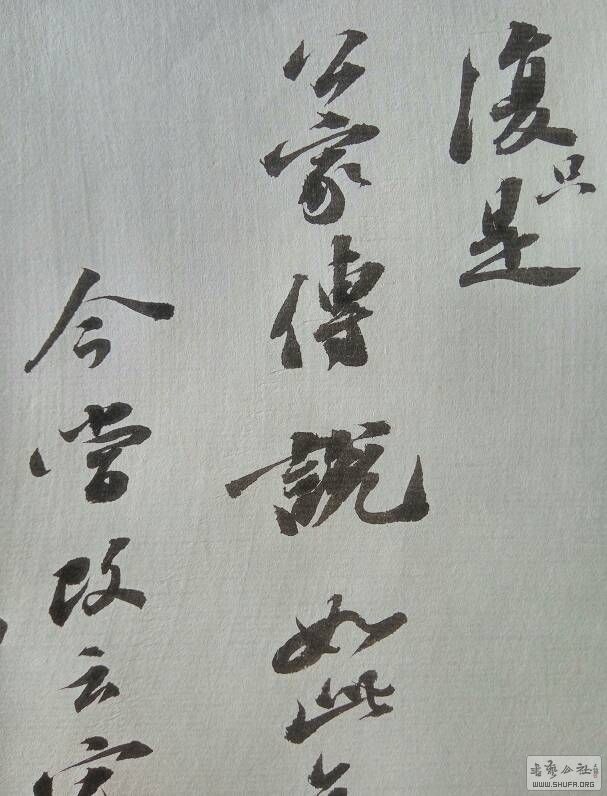 復只是
公家傳說如此
今當改云
書藝公社
WWW.SHUFA.ORG